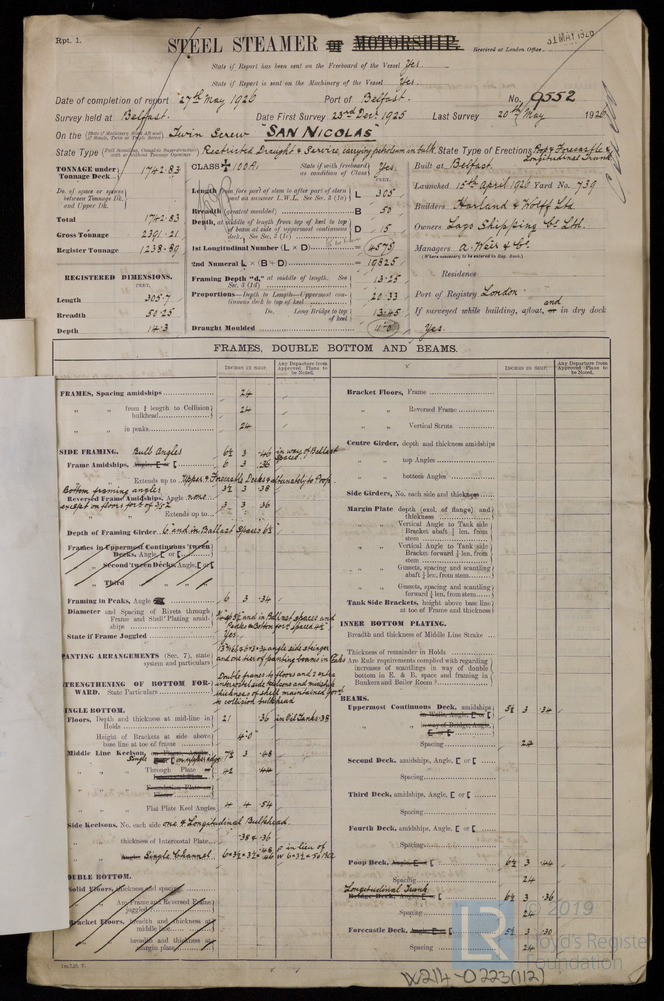 Rpt. 1.
STEEL STEAMER OR MOTORSHIP.
Received at London Office 31 MAY 1926
State if Report has been sent on the Freeboard of the Vessel Yes.
State if Report is sent on the Machinery of the Vessel Yes.
Date of completion of report 27th May 1926 Port of Belfast. No. 9552
Survey held at Belfast. Date First Survey 23rd Dec. 1925 Last Survey 20th May 1926
On the Twin Screw SAN NICOLAS
State Type Restricted Draught & Service carrying petroleum in bulk State Type of Erections Poop & Forecastle & Longitudinal Trunk
TONNAGE under Tonnage Deck 1742.83
Do. of space or spaces between Tonnage Dk. and Upper Dk.
Total 1742.83
Gross Tonnage 2391.21
Register Tonnage 1238.89
REGISTERED DIMENSIONS.
FEET.
Length 305.7
Breadth 50.25
Depth 14.3
CLASS 100A. State if with freeboard as condition of Class Yes
FEET.
Length from fore part of stem to after part of stern post on summer L.W.L. See Sec. 3 (1a) L 305
Breadth (greatest moulded) B 50
Depth, at middle of length from top of keel to top of beam at side of uppermost continuous deck. See Sec. 3 (1c) D 15
1st Longitudinal Number (L × D) = 4575
2nd Numeral L × (B + D) = 19825
Framing Depth "d," at middle of length. See Sec. 3 (1d) 13.25
Proportions—Depth to Length—Uppermost continuous deck to top of keel 20.33
Do. Long Bridge to top of keel 13.45
Draught Moulded
Built at Belfast.
Launched 15th April 1926 Yard No. 739
Builders Harland & Wolff Ltd.
Owners Lago Shipping Co. Ltd.
Managers A. Weir & Co.
(Where necessary to be entered in Reg. Book.)
Residence
Port of Registry London
If surveyed while building, afloat, or and in dry dock
Yes.
FRAMES, DOUBLE BOTTOM AND BEAMS.
INCHES IN SHIP.
Any Departure from Approved Plans to be Noted.
INCHES IN SHIP.
Any Departure from Approved Plans to be Noted.
FRAMES, Spacing amidships 24
" " from ⅕ length to Collision bulkhead 24
" " in peaks 24
SIDE FRAMING. Bulb Angles 6½ 3 .46 in way of Ballast Spaces
Frame Amidships, Angle, E or [ 6 3 .36
Extends up to Upper & Forecastle Decks & alternately to Poop
Bottom framing angles 3½ 3 .38
Reversed Frame Amidships, Angle none
except on floors for ½ of 3/5 L 3 3 .36
" " Extends up to
Depth of Framing Girder 6" and in Ballast Spaces 6½
Frames in Uppermost Continuous 'tween Decks, Angle, E or [
" Second 'tween Decks, Angle, E or [
" Third " "
Framing in Peaks, Angle 6 3 .34
Diameter and Spacing of Rivets through Frame and Shell Plating amidships
State if Frame Joggled Yes.
PANTING ARRANGEMENTS (Sec. 7), state system and particulars
STRENGTHENING OF BOTTOM FORWARD. State Particulars
SINGLE BOTTOM.
Floors, Depth and thickness at mid-line in Holds 21 .36 in Oil Tanks .38
Height of Brackets at side above base line at toe of frame 4'-0"
Middle Line Keelson, Single 7½ 3 .48
" " Through Plate 42 .44
" " Foundation Plate
" " Flat Plate Keel Angles 4 4 .54
Side Keelsons, No. each side one & Longitudinal Bulkhead
" " thickness of Intercostal Plate .38 & .36
" " Angles Single Channel
DOUBLE BOTTOM.
Solid Floors, thickness and spacing
" " Are Frame and Reversed Frame joggled?
Bracket Floors, breadth and thickness at middle line
" " breadth and thickness at margin plate
Bracket Floors, Frame
" " Reversed Frame
" " Vertical Struts
Centre Girder, depth and thickness amidships
" " top Angles
" " bottom Angles
Side Girders, No. each side and thickness
Margin Plate depth (excl. of flange) and thickness
" " Vertical Angle to Tank side Bracket abaft ¼ len. from stem
" " Vertical Angle to Tank side Bracket forward ¼ len. from stem
" " Gussets, spacing and scantling abaft ¼ len. from stem
" " Gussets, spacing and scantling forward ¼ len. from stem
Tank Side Brackets, height above base line at toe of Frame and thickness
INNER BOTTOM PLATING.
Breadth and thickness of Middle Line Strake
Thickness of remainder in Holds
Are Rule requirements complied with regarding increase of scantlings in way of double bottom in E. & B. space and framing in Bunkers and Boiler Room?
BEAMS.
Uppermost Continuous Deck, amidships 5½ 3 .34
Spacing 24
Second Deck, amidships, Angle, E or [
Spacing
Third Deck, amidships, Angle, E or [
Spacing
Fourth Deck, amidships, Angle, E or [
Spacing
Poop Deck, Angle, E or [ 6½ 3 .44
Spacing 24
Longitudinal Trunk
Bridge Deck, Angle, E or [ 6½ 3 .36
Spacing 24
Forecastle Deck, Angle, E or [ 5½ 3 .30
Spacing 24
© 2019
Lloyd's Register
Foundation
LR
W214-0223(1/2)